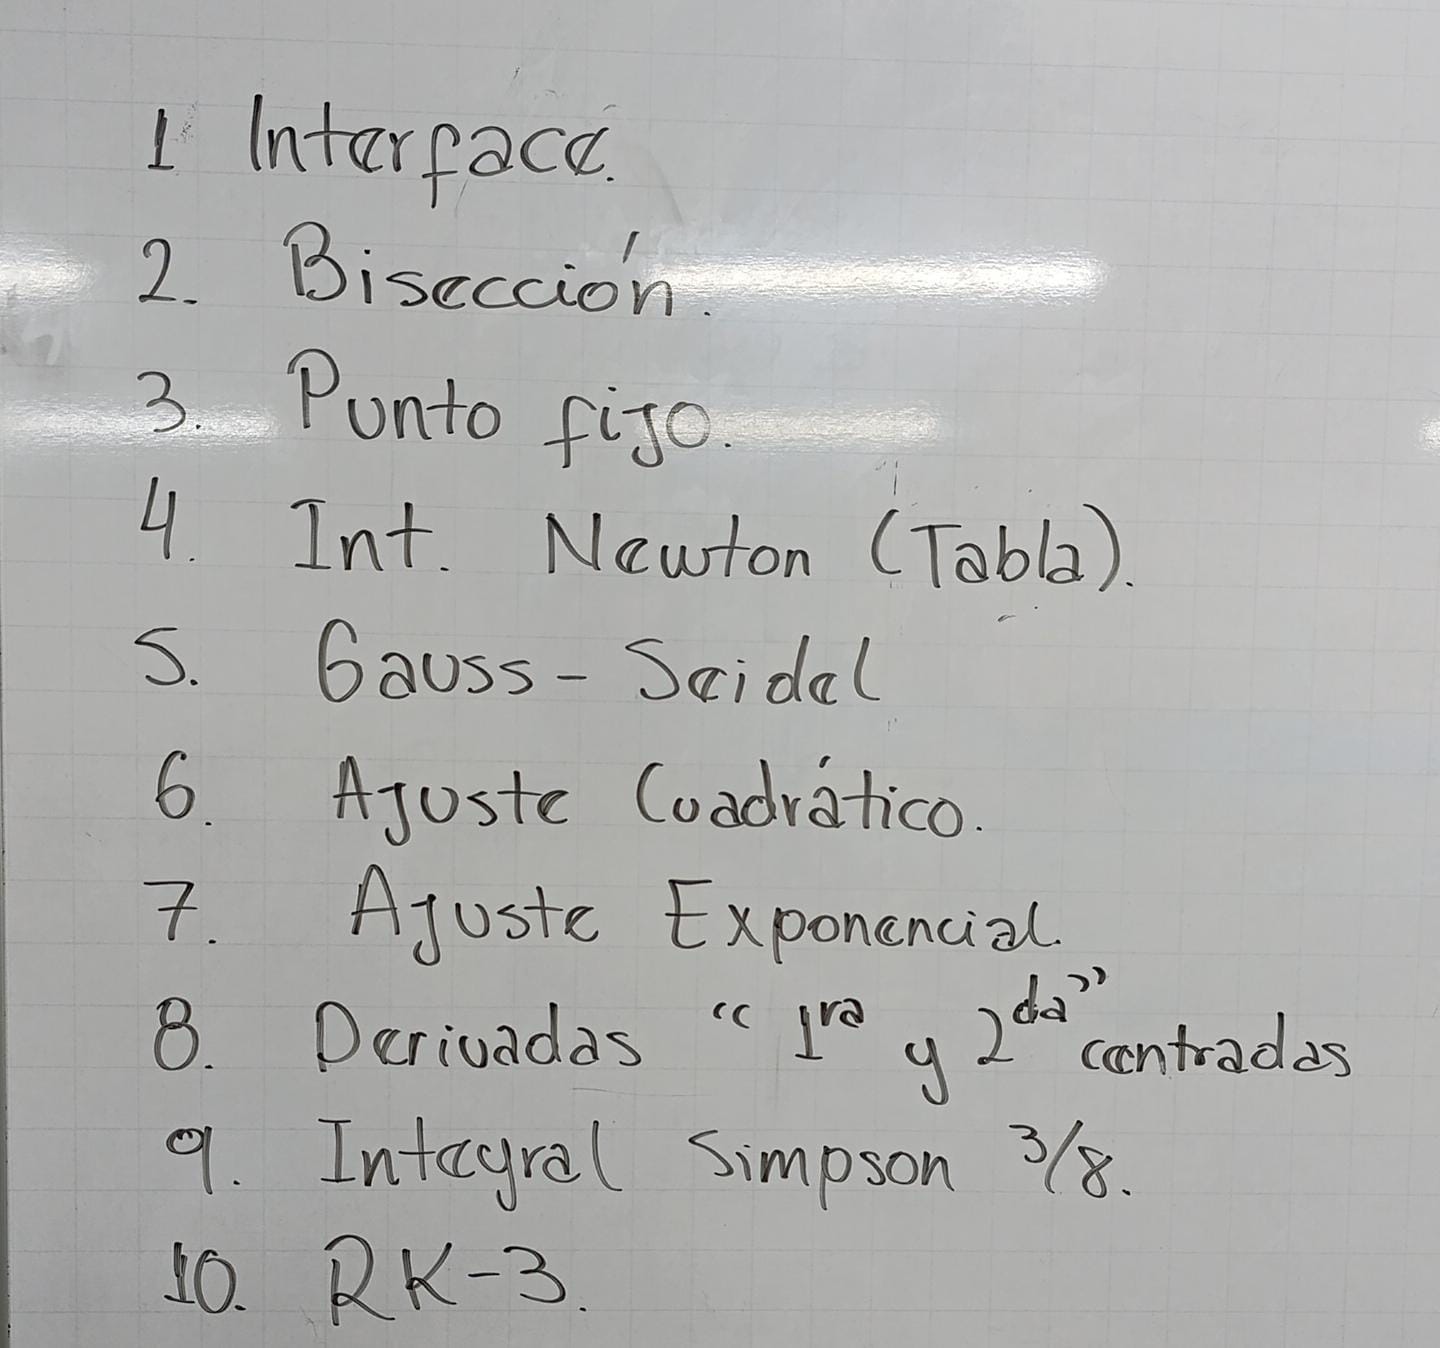 1 Interface.
2. Bisección.
3. Punto fijo.
4. Int. Newton (Tabla).
5. Gauss-Seidel
6. Ajuste Cuadrático.
7. Ajuste Exponencial.
8. Derivadas "1ra y 2da" centradas
9. Integral Simpson 3/8.
10. RK-3.